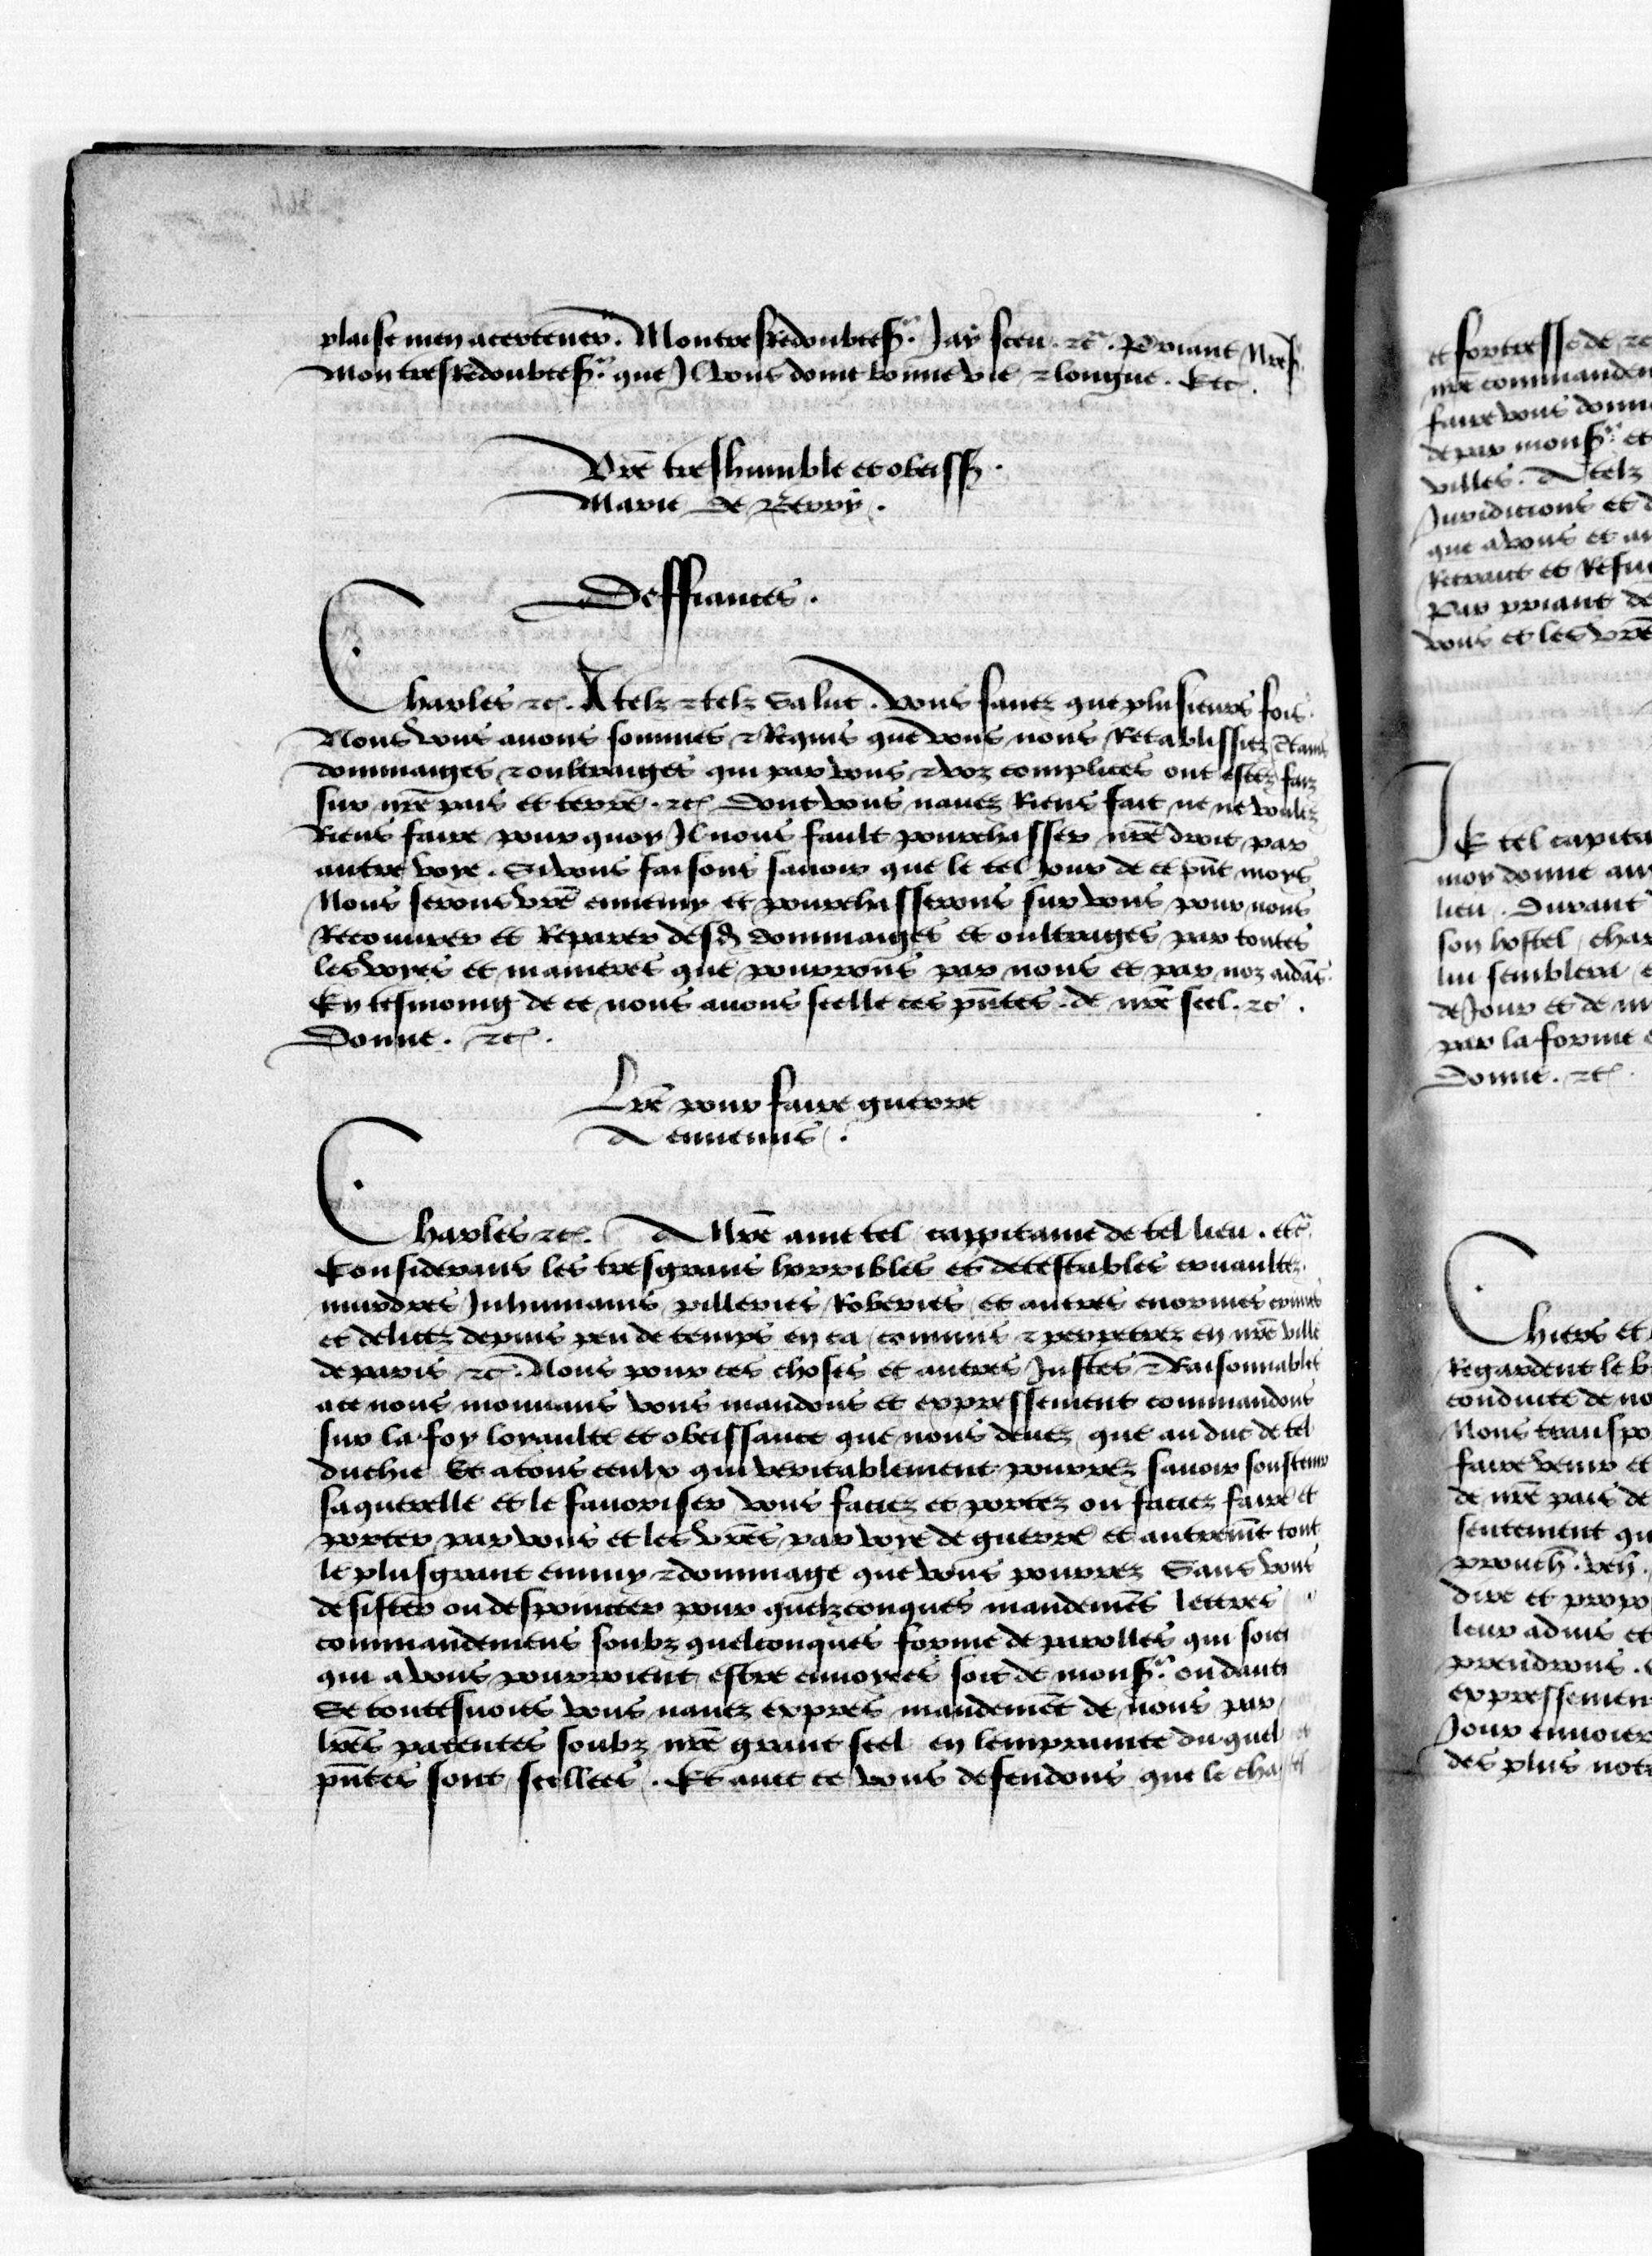 plaise men acertener. Mon tresredoubte sr. Jay sceu. etc. Priant nre sr.
Mon tresredoubte sr. que Il vous doint bonne vie & longue. Etc.
Vre treshumble et obeiss.
Marie de Berry.
Deffiances.
Charles etc. A telz & telz Salut. Vous sauez que plusieurs fois
Nous vous auons sommes & Requis que vous nous Retablissiez
dommaiges & oultraiges qui par vous & voz complices ont estez faiz
sur nre pais et terre. etc Dont vous nauez Riens fait ne ne voulez
Riens faire pour quoy Il nous fault pourchasser nre droit par
autre voye. Si vous faisons sauoir que le tel Jour de ce pnt moys
Nous serons vre ennemy et pourchasserons sur vous pour nous
Recouurer et Reparer desd dommaiges et oultraiges par toutes
les voyes et manieres que pourrons par nous et par noz aidas.
En tesmoing de ce nous auons scelle ces pntes. de nre scel. etc.
Donne. etc.
Lre pour faire guerre
A ennemis.
Charles etc. A Nre ame tel cappitaine de tel lieu. etc
Considerans les tresgrans horribles et detestables cruaultez
murdres Inhumains pilleries Roberies et autres enormes crimes
et delictz depuis peu de temps en ca commis & perpetrez en nre ville
de paris etc. Nous pour ces choses et autres Justes & Raisonnables
ace nous mouuans vous mandons et expressement commandons
sur la foy loyaulte et obeissance que nous deuez que au duc de tel
duchie Et a tous ceulx qui veritablement pourrez sauoir soustenir
sa querelle et le fauoriser vous faciez et portez ou faciez faire et
porter par vous et les vres par voye de guerre et autremt tout
le plus grant ennuy & dommage que vous pourrez Sans vous
desister ou despointer pour quelzconques mandemes lettres
commandemens soubz quelconques forme de parolles qui soit
qui a vous pourroient estre enuoyees soit de monsr. ou dautre
Se toutesuoies vous nauez expres mandemet de nous par
lres patentes soubz nre grant scel en lempraincte du quel
pntes sont scellees. Et auec ce vous defendons que le cha

et forteresse de etc
nre commandem
faire vous donn
de par monsr. et
villes. A telz
Juridicions et d
que a vous et au
Retrait et Refu
Par priant de
vous et les vre
JE tel capita
moy donne au
lieu. Durant
son hostel char
lui semblera
de Jour et de nu
par la forme
Donne. etc.
Chiers et
Regardent le b
conduite de no
Nous transpo
faire venir et
de nre pais de
sentement qu
dire et propo
leur aduis et
prendrons.
expressemen
Jour enuoier
des plus nota